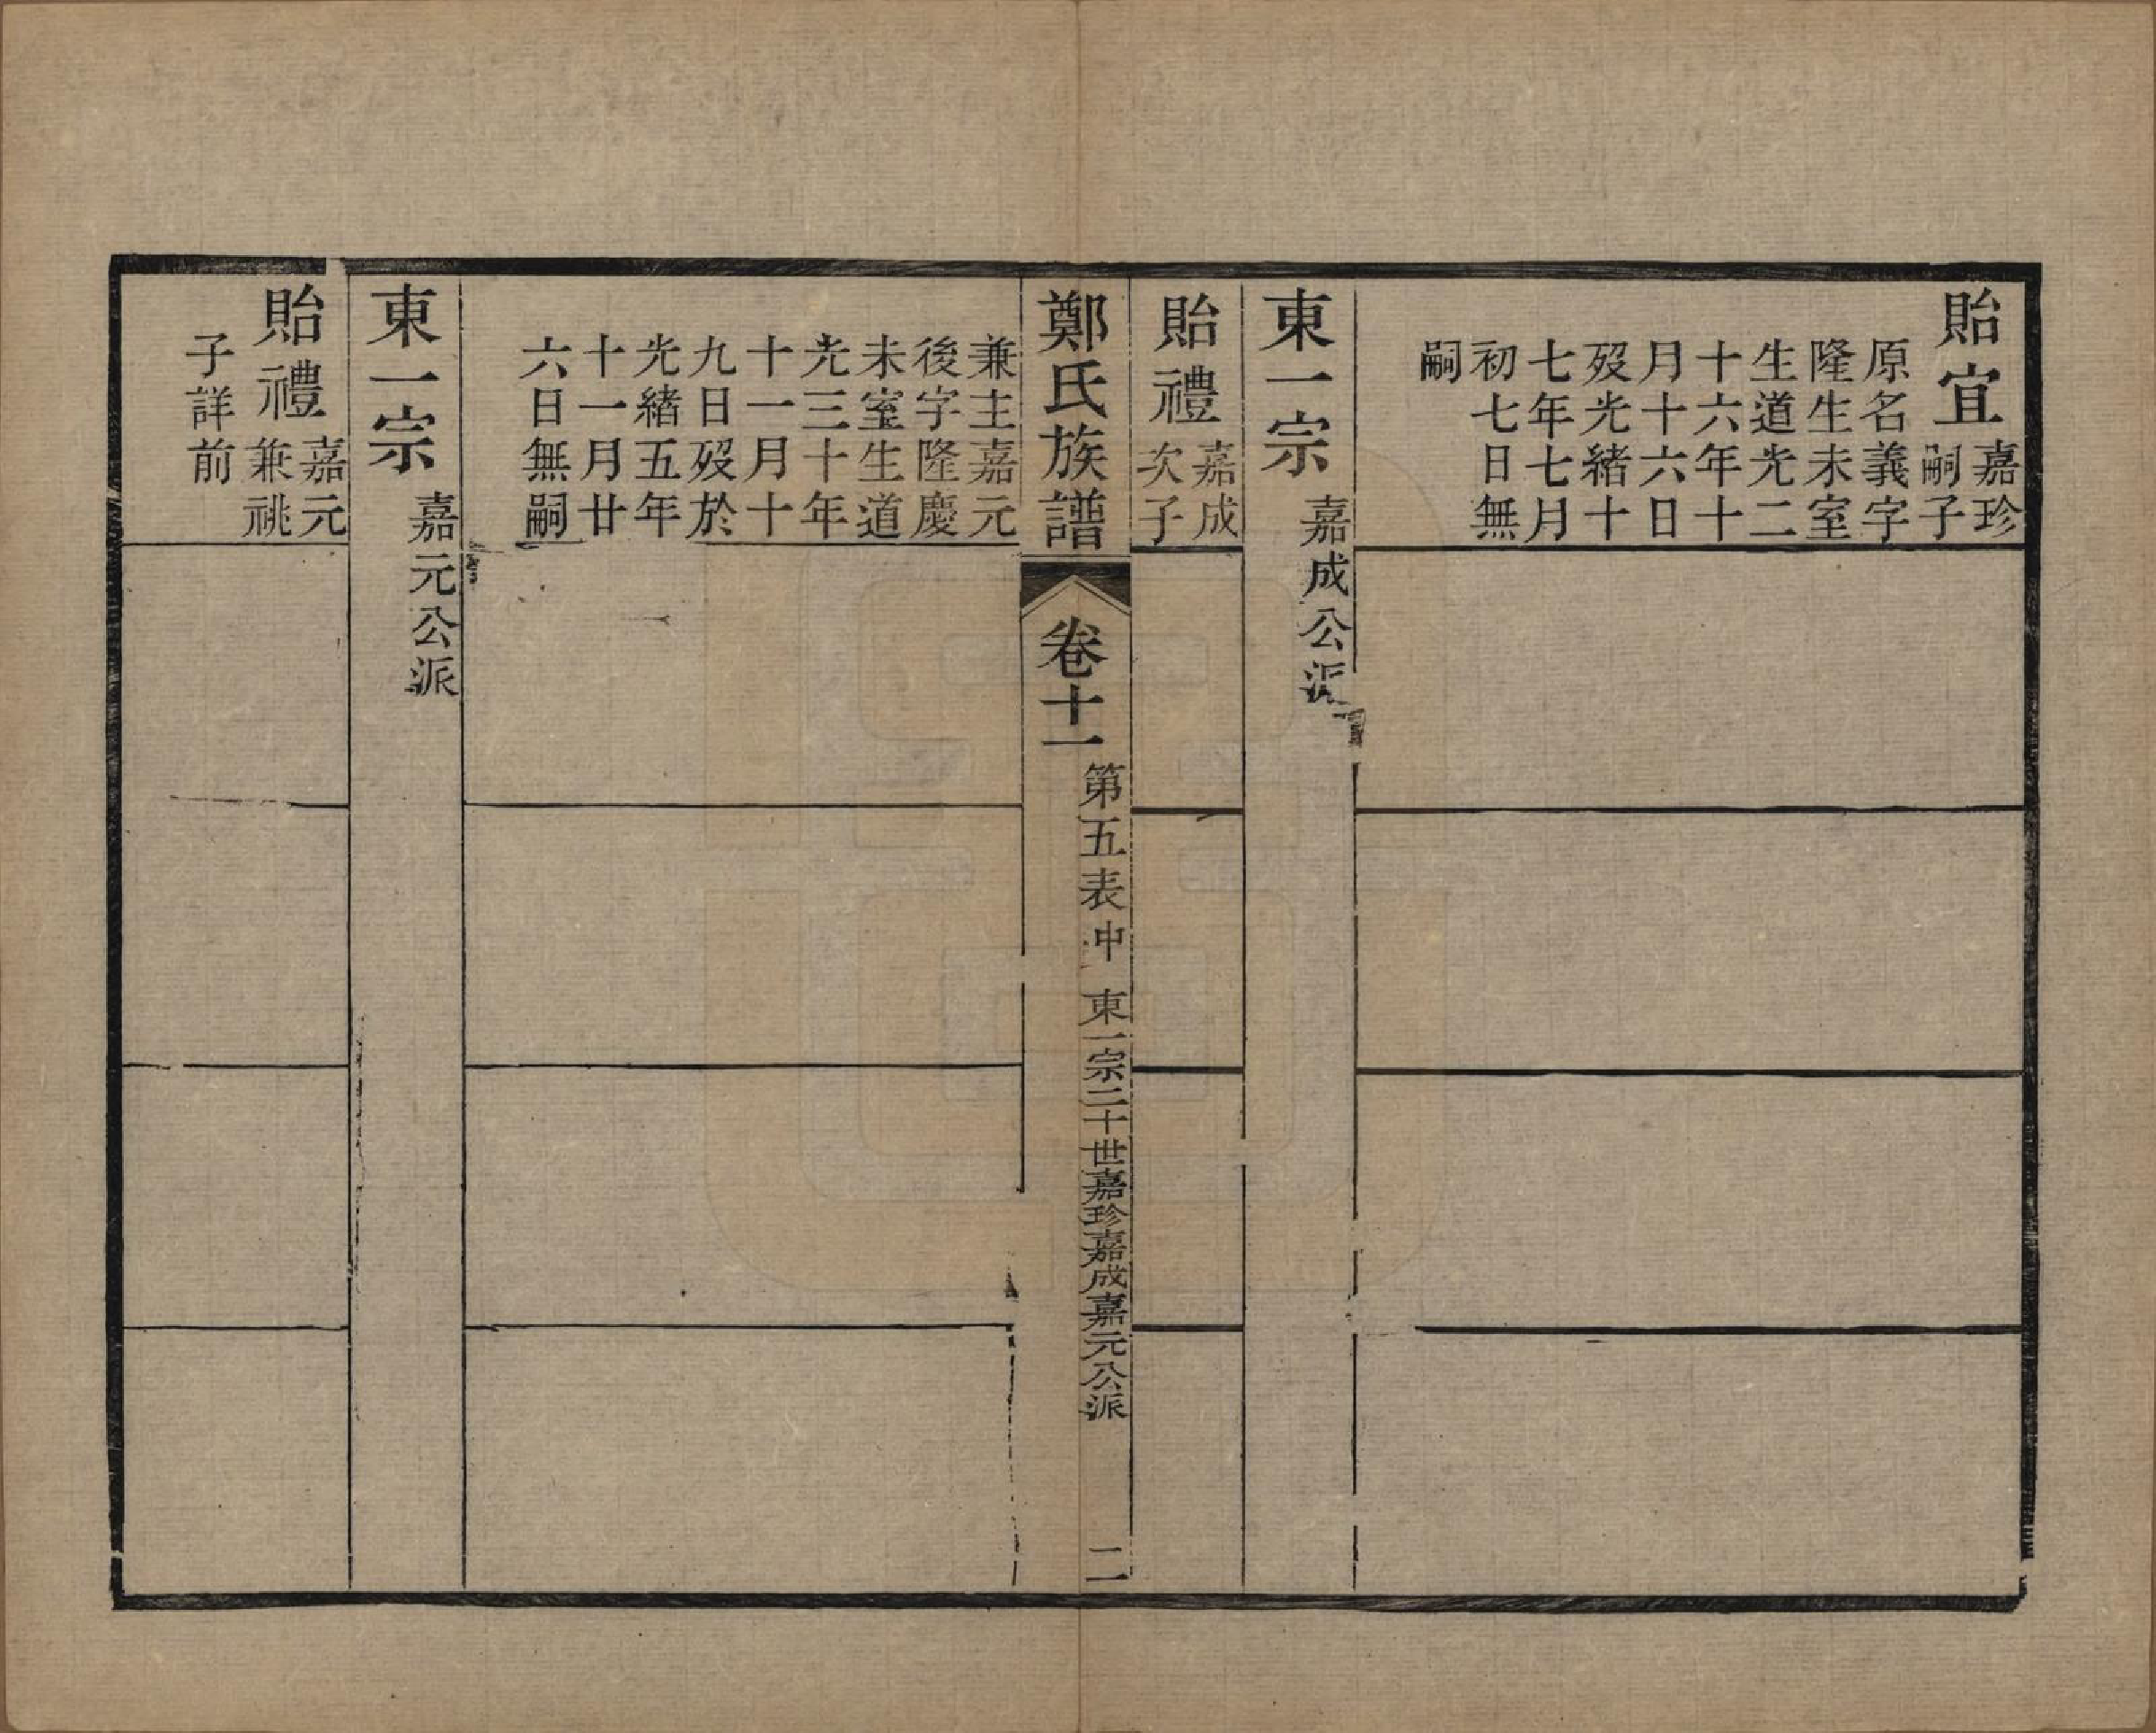 貽宜
嘉珍
嗣子
原名義字
隆生未室
生道光二
十六年十
月十六日
歿光緒十
七年七月
初七日無
嗣
東一宗
嘉成公派
貽禮
嘉成
次子
鄭氏族譜
卷十一
第五表中
東一宗二十世嘉珍嘉成嘉元公派
二
兼主嘉元
後字隆慶
未室生道
光三十年
十一月十
九日歿於
光緒五年
十一月廿
六日無嗣
東一宗
嘉元公派
貽禮
嘉元
兼祧
子詳前